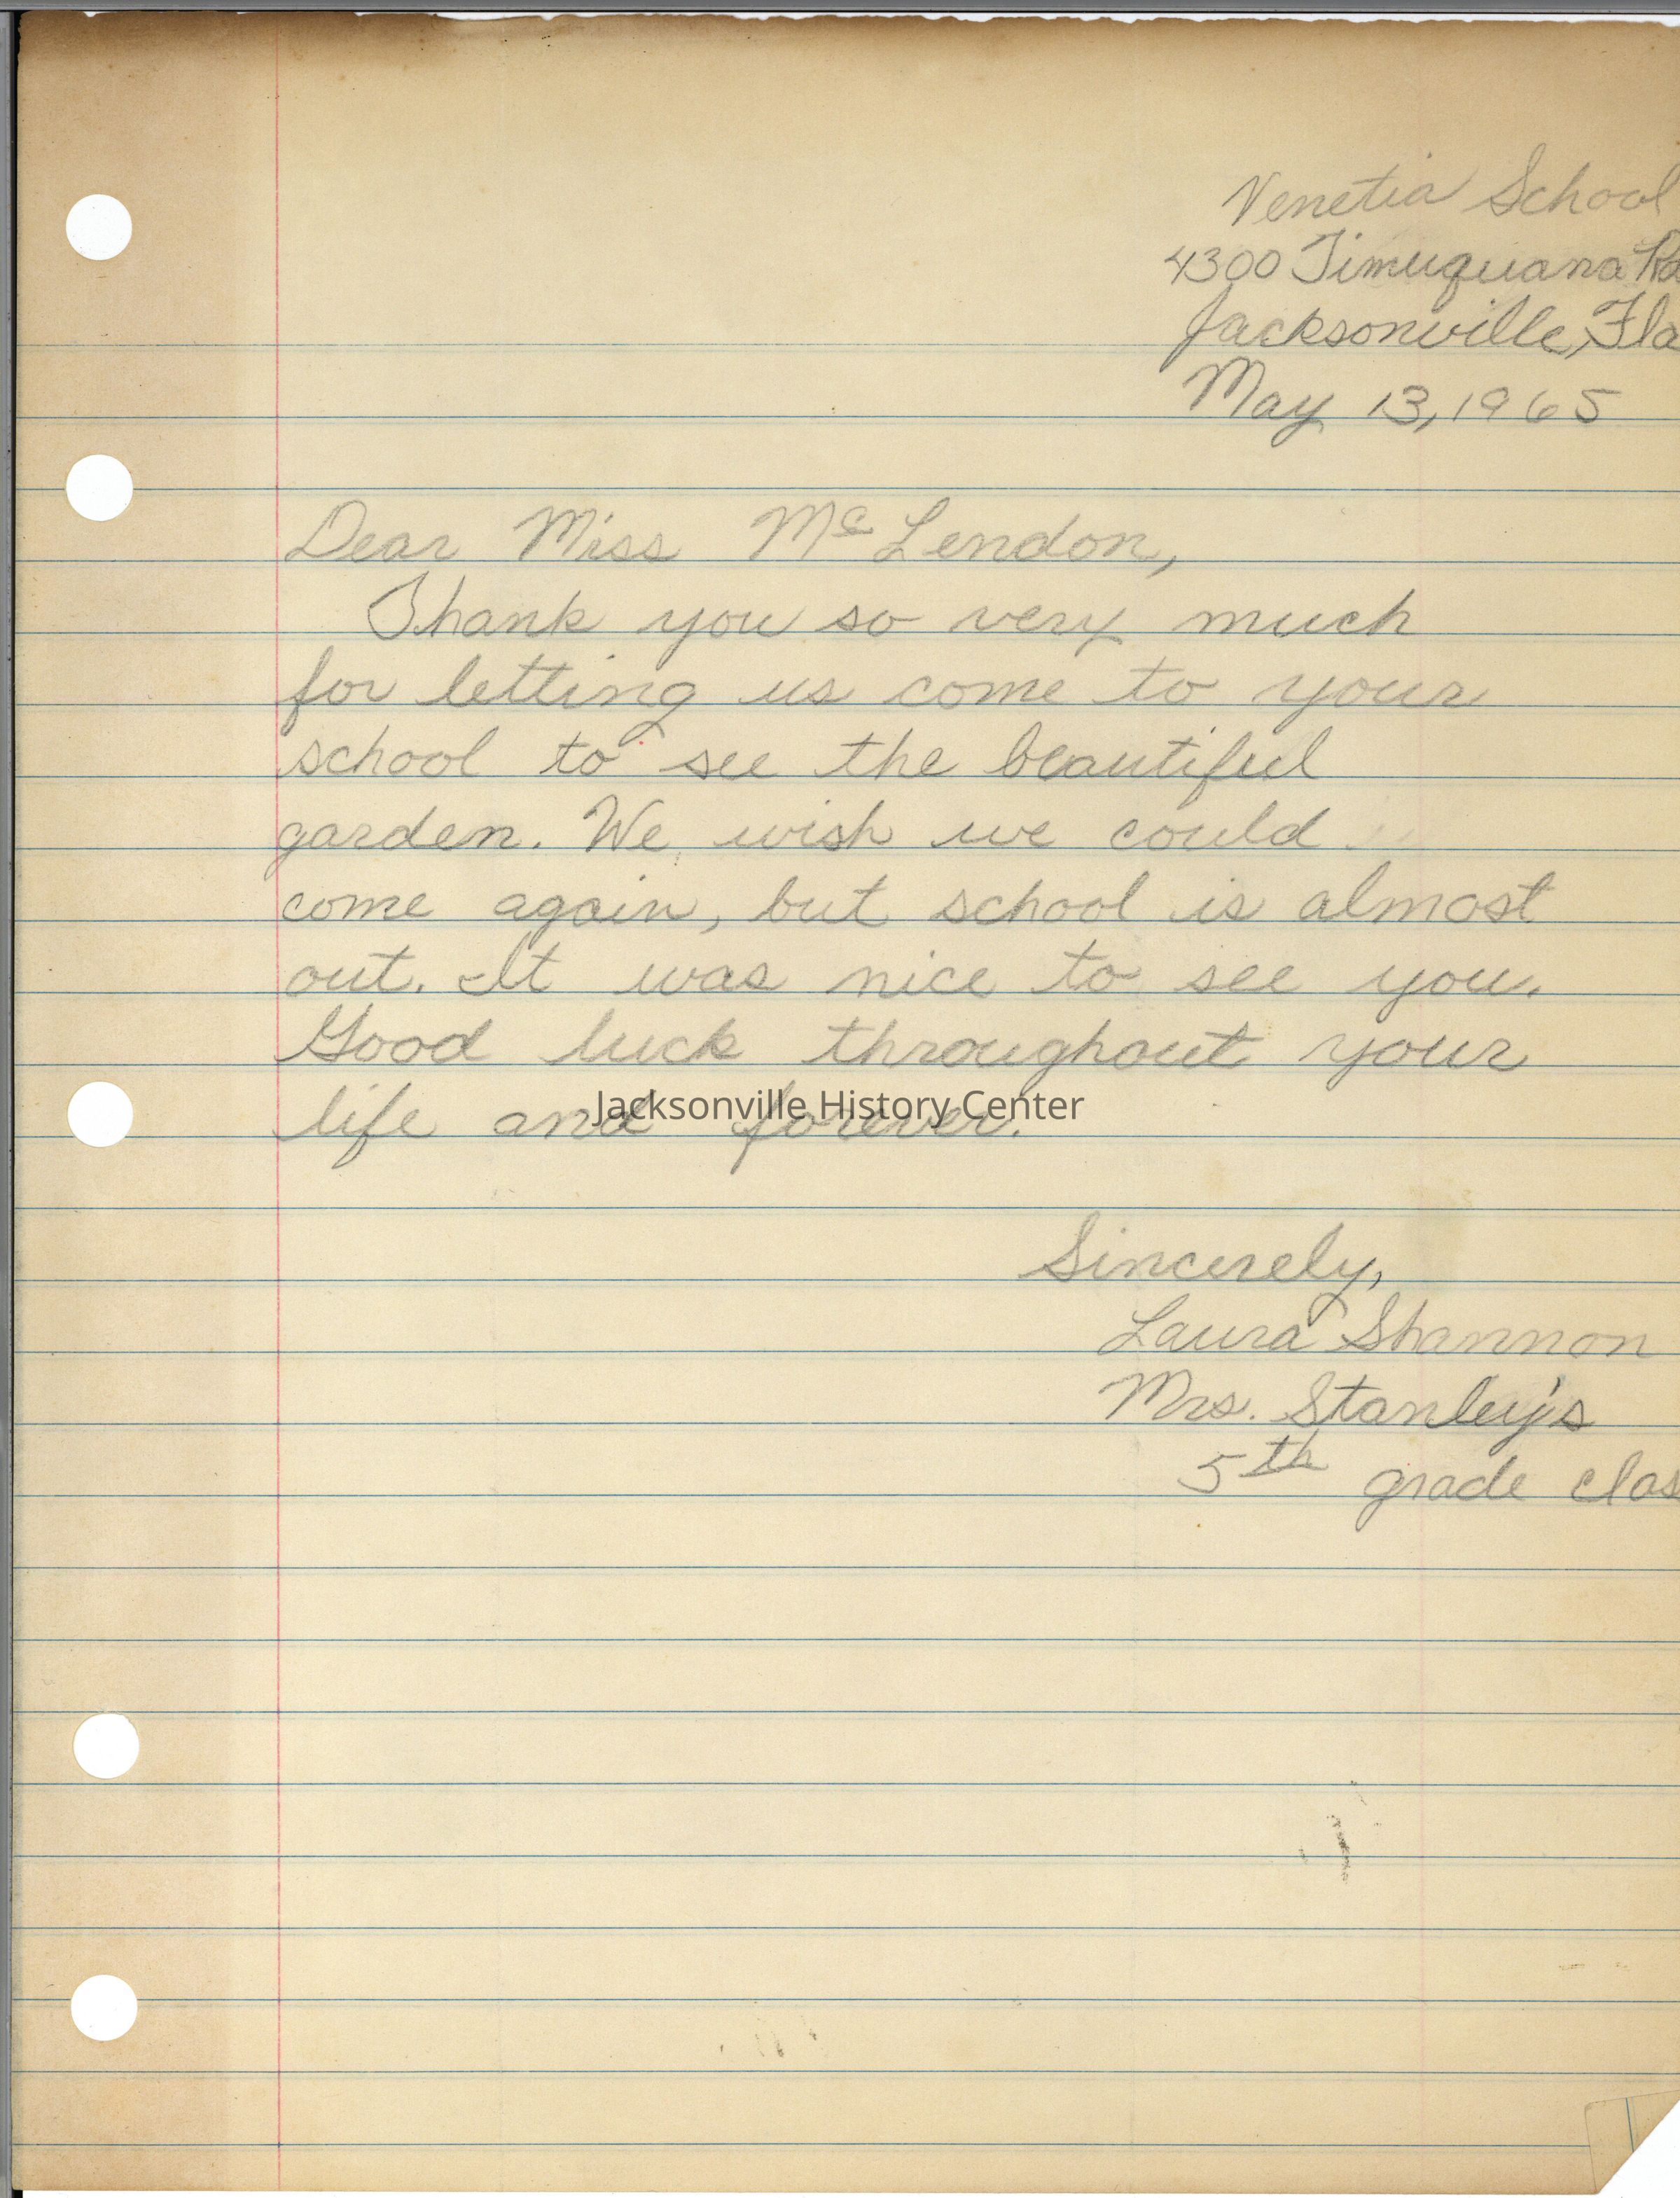 Venetia School
4300 Timuquana Rd
Jacksonville, Fla
May 13, 1965
Dear Miss McLendon,
Thank you so very much
for letting us come to your
school to see the beautiful
garden. We wish we could
come again, but school is almost
out. It was nice to see you.
Good luck throughout your
life and forever.
Jacksonville History Center
Sincerely,
Laura Shannon
Mrs. Stanley's
5th grade clas